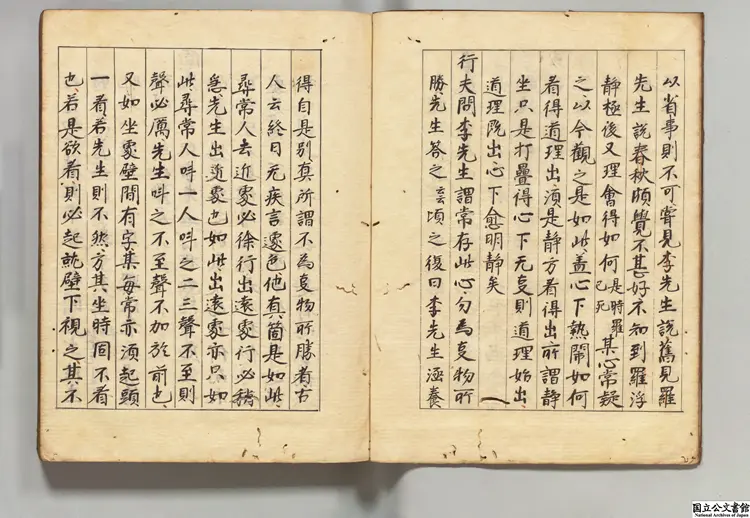 以省事則不可嘗見李先生說舊見羅
先生說春秋頗覺不甚好不知到羅浮
靜極後又理會得如何是時羅已死某心常疑
之以今觀之是如此蓋心下熱鬧如何
看得道理出湏是靜方看得出所謂靜
坐只是打疊得心下无事則道理始出
道理既出心下愈明靜矣
行夫問李先生謂常存此心勿為事物所
勝先生答之云云頃之復曰李先生涵養
得自是別真所謂不為事物所勝者古
人云終日无疾言遽色他真箇是如此
尋常人去近處必徐行出遠處行必稍
急先生出近處也如此出遠處亦只如
此尋常人叫一人叫之二三聲不至則
聲必厲先生叫之不至聲不加於前也
又如坐處壁間有字某每常亦湏起頭
一看若先生則不然方其坐時固不看
也若是欲看則必起就壁下視之其不
国立公文書館
National Archives of Japan